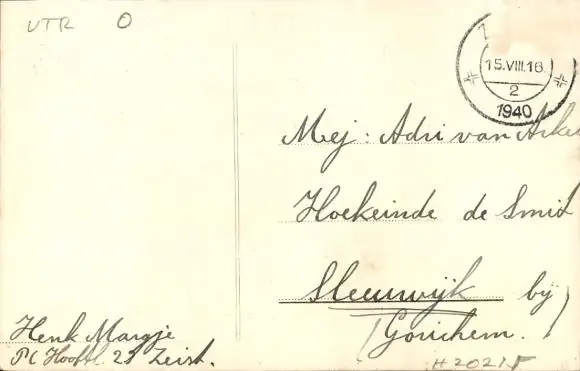 UTR O
15.VIII.16
2
1940
Mej: Adri van
Hoekeinde de Smit
Sleeuwijk bij
(Gorichem.)
Henk Margje
PC Hooftl. 21 Zeist.